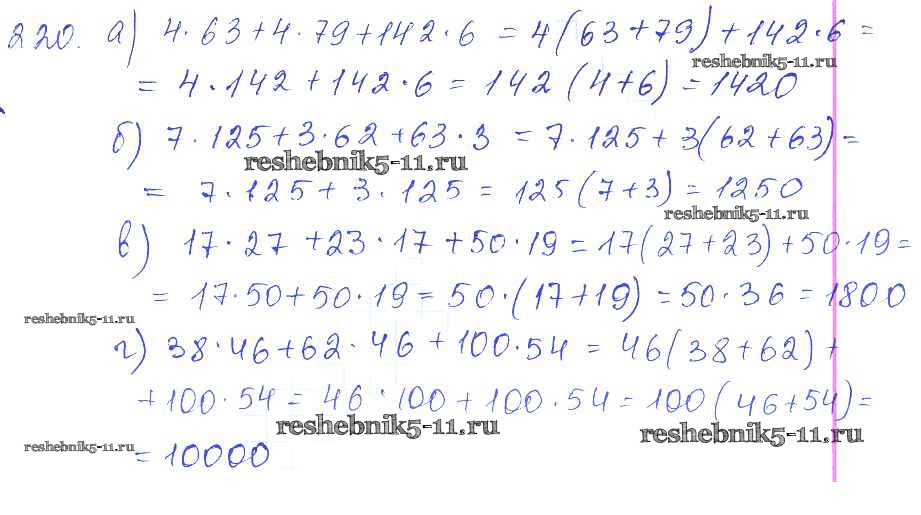 220. а) 4·63+4·79+142·6 = 4(63+79)+142·6 =
reshebnik5-11.ru
= 4·142+142·6 = 142(4+6) = 1420
б) 7·125+3·62+63·3 = 7·125+3(62+63) =
reshebnik5-11.ru
= 7·125+3·125 = 125(7+3) = 1250
reshebnik5-11.ru
в) 17·27+23·17+50·19 = 17(27+23)+50·19 =
= 17·50+50·19 = 50·(17+19) = 50·36 = 1800
reshebnik5-11.ru
г) 38·46+62·46+100·54 = 46(38+62)+
+100·54 = 46·100+100·54 = 100(46+54) =
reshebnik5-11.ru
reshebnik5-11.ru
reshebnik5-11.ru
= 10000